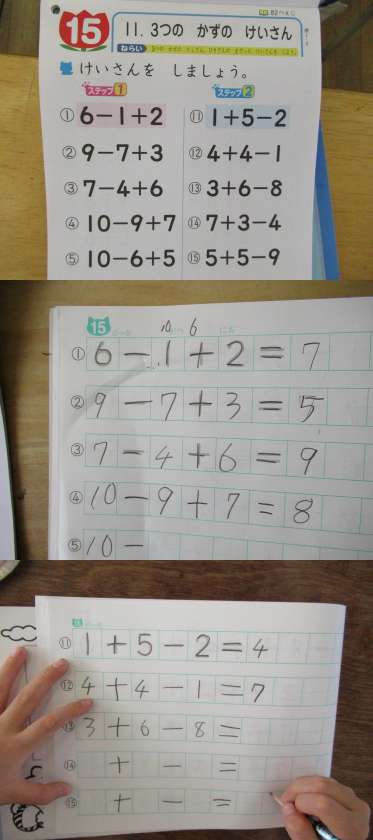 15
11. 3つの かずの けいさん
ねらい
けいさんを しましょう。
ステップ1
① 6−1+2
② 9−7+3
③ 7−4+6
④ 10−9+7
⑤ 10−6+5
ステップ2
⑪ 1+5−2
⑫ 4+4−1
⑬ 3+6−8
⑭ 7+3−4
⑮ 5+5−9
15 10 6 にち
① 6−1+2=7
② 9−7+3=5
③ 7−4+6=9
④ 10−9+7=8
⑤ 10−
⑪ 1+5−2=4
⑫ 4+4−1=7
⑬ 3+6−8=
⑭ + − =
⑮ + − =